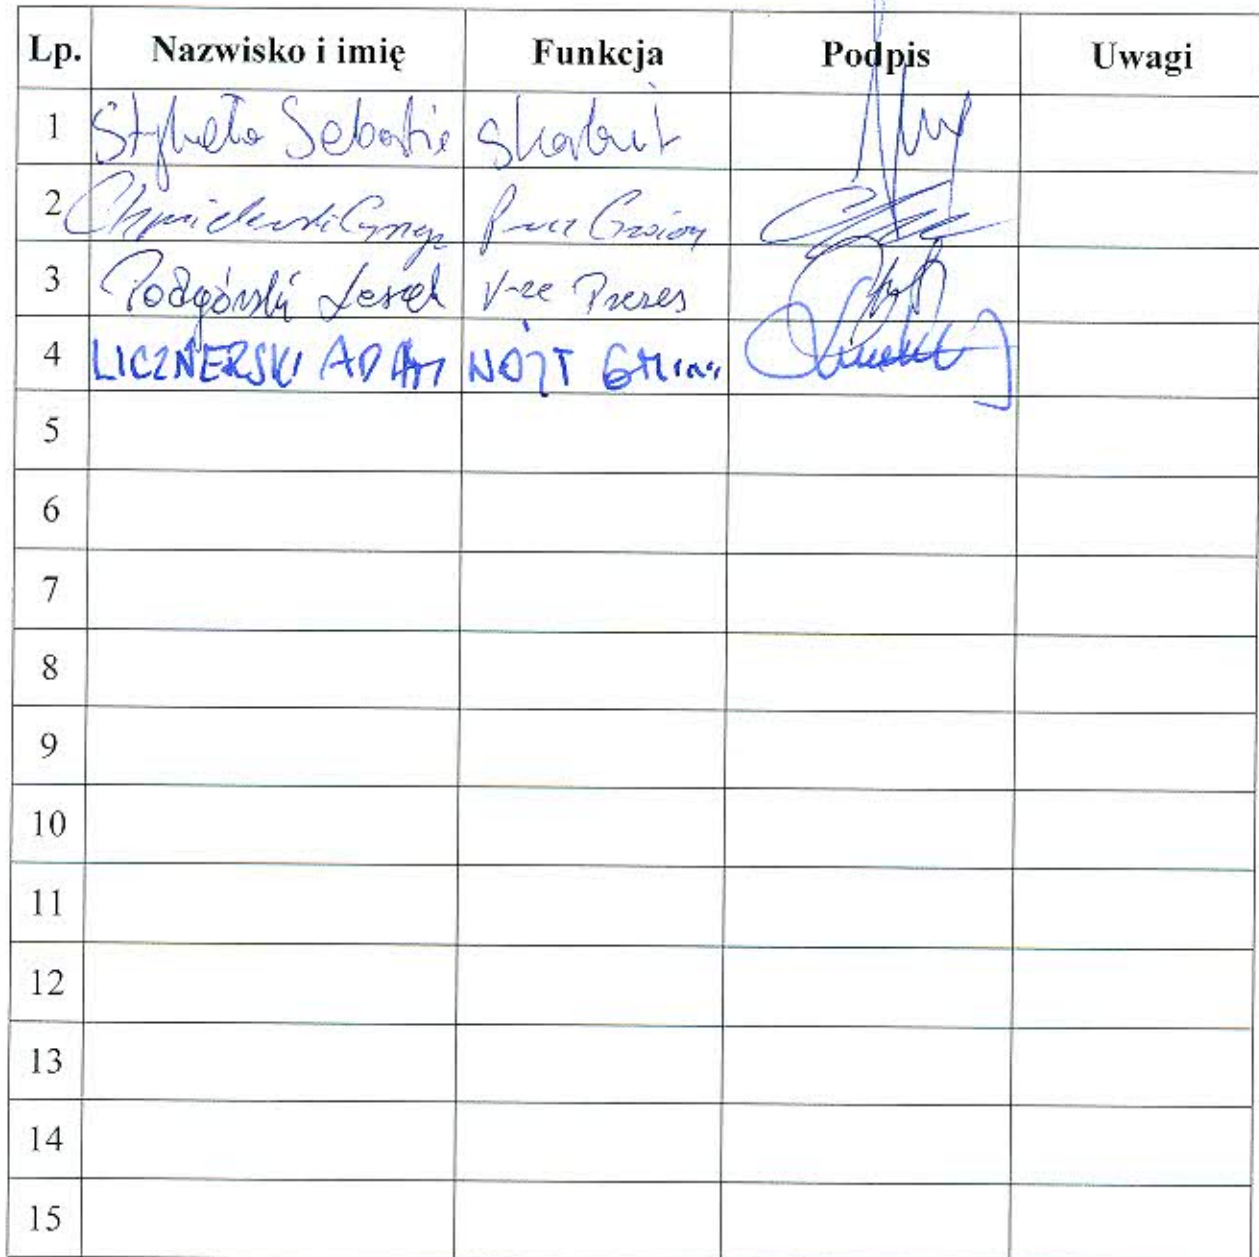 Lp. Nazwisko i imię Funkcja Podpis Uwagi
1 Sebastian
2 Chmielewski Prez Gminny
3 Podgórski Leszek V-ce Prezes
4 LICZNERSKI ADAM WÓJT GMINY
5
6
7
8
9
10
11
12
13
14
15